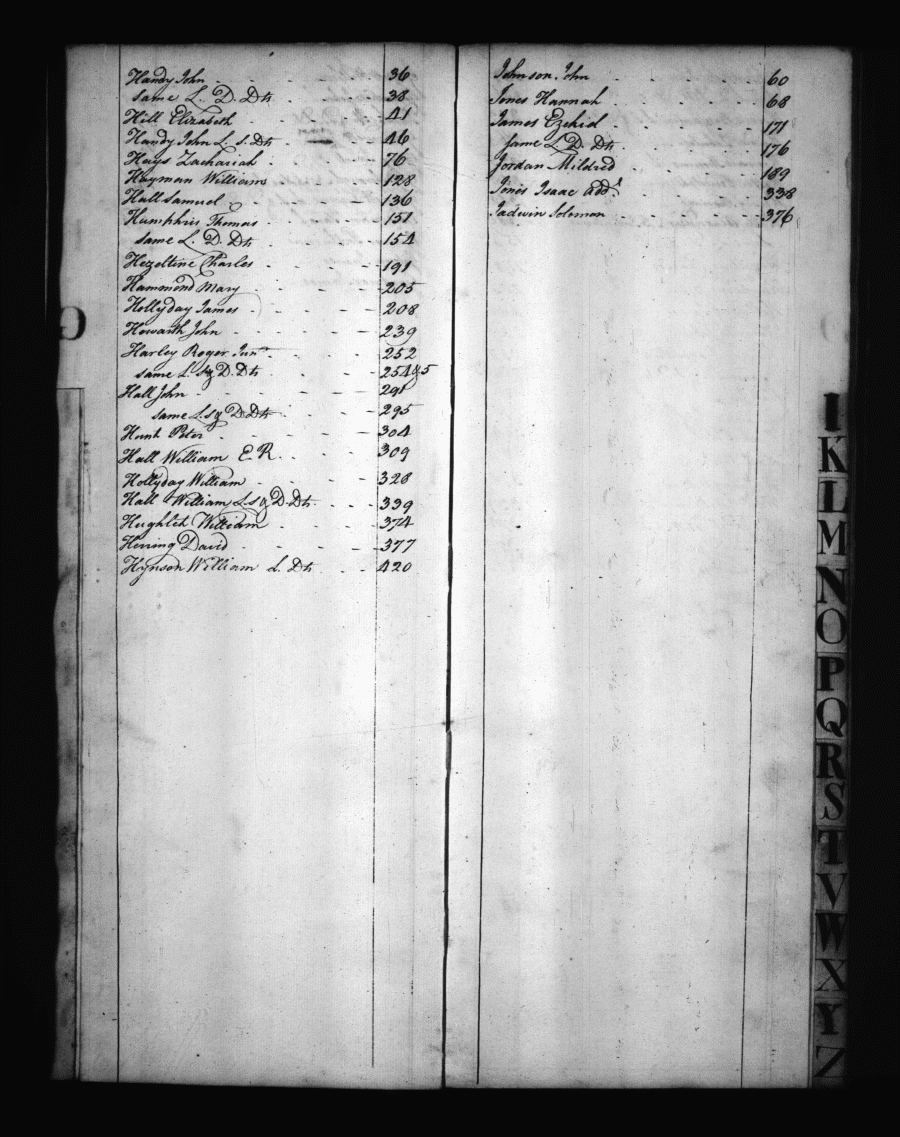 Handy John 36
same L. D. Dts 38
Hill Elizabeth 41
Handy John L. S. Dts 46
Hays Zachariah 76
Hayman William 128
Hall Samuel 136
Humphris Thomas 151
same L. D. Dts 154
Hezeltine Charles 191
Hammond Mary 205
Hollyday James 208
Howarth John 239
Harley Roger Junr 252
same L. sg D. Dts 254 & 5
Hall John 291
same L. sg D. Dts 295
Hunt Peter 304
Hall William E R. 309
Hollyday William 328
Hall William L. sg D. Dts 339
William 374
Herring David 377
Hynson William L. Dts 420
G
Johnson John 60
Jones Hannah 68
James Ezekiel 171
same L. D. Dts 176
Jordan Mildred 189
Jones Isaac 338
Jadwin Solomon 376
I
K
L
M
N
O
P
Q
R
S
T
V
W
X
Y
Z